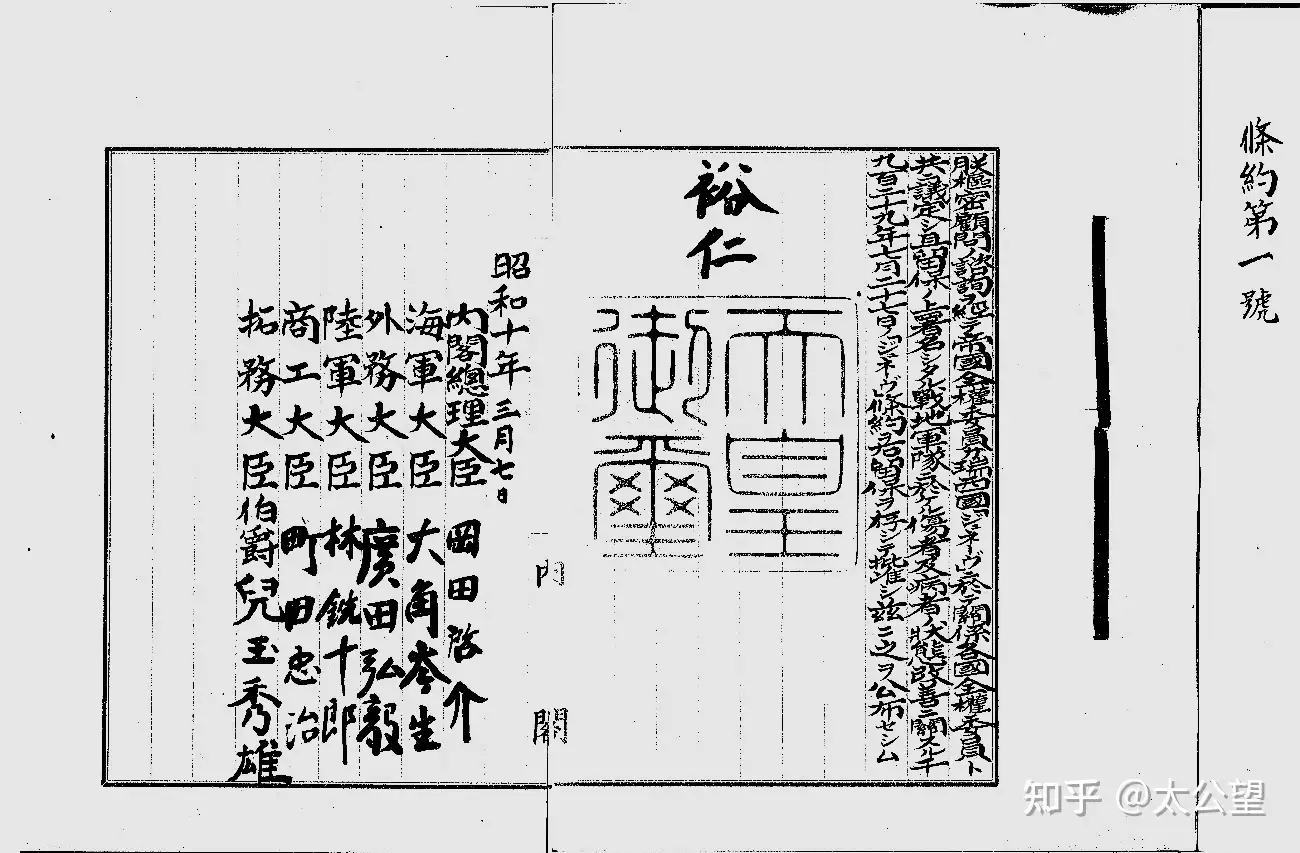 條約第一號
朕樞密顧問ノ諮詢ヲ經テ帝國全權委員ガ瑞西國「ジュネーヴ」ニ於テ關係各國全權委員ト
共ニ議定シ且留保ノ上署名シタル戰地軍隊ニ於ケル傷者及病者ノ狀態改善ニ關スル千
九百二十九年七月二十七日ノ「ジュネーヴ」條約ヲ右留保ヲ存シテ批准シ茲ニ之ヲ公布セシム
裕仁
天皇
御璽
昭和十年三月七日
內閣總理大臣 岡田啓介
海軍大臣 大角岑生
外務大臣 廣田弘毅
陸軍大臣 林銑十郎
商工大臣 町田忠治
拓務大臣伯爵兒玉秀雄
內閣
知乎 @太公望